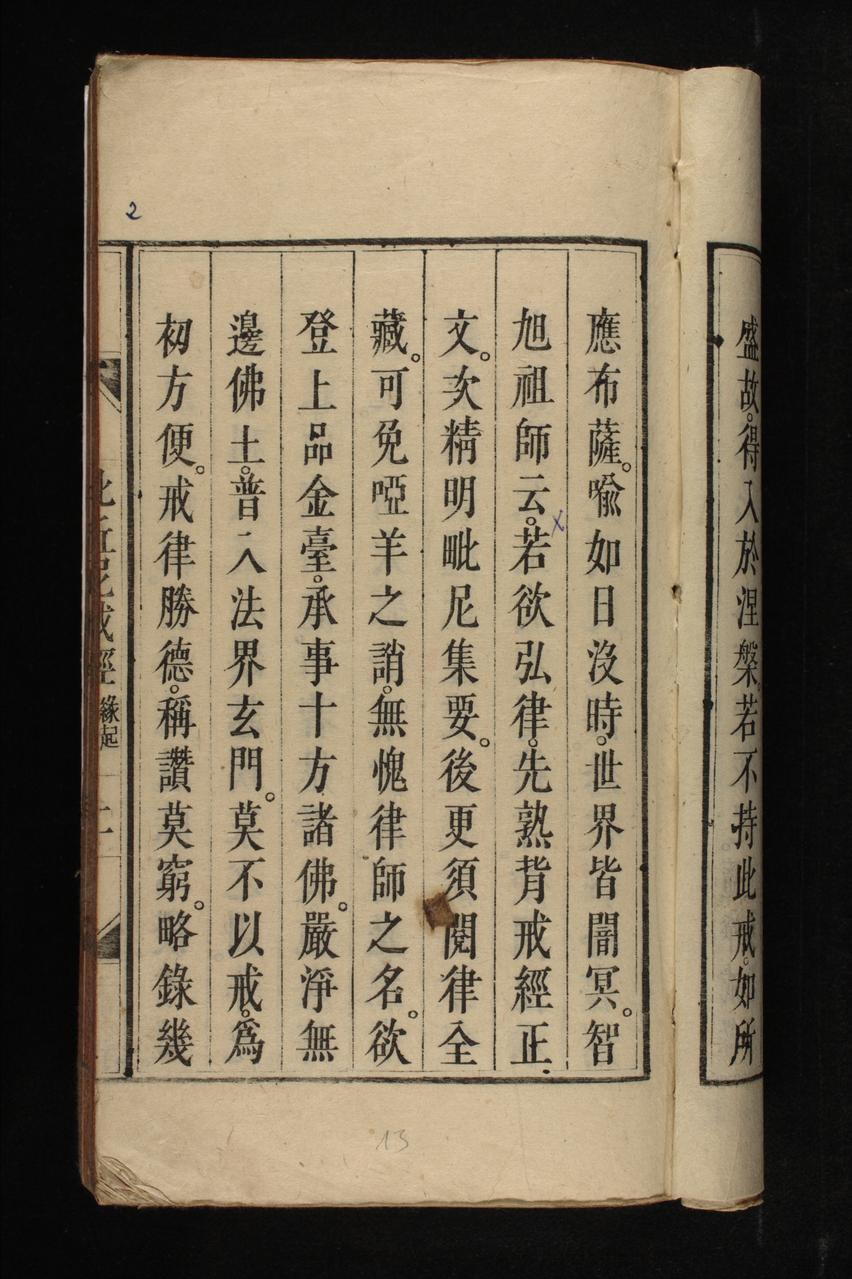 盛故。得入於涅槃。若不持此戒。如所
應布薩。喻如日沒時。世界皆闇冥。智
旭祖師云。若欲弘律。先熟背戒經正
文。次精明毗尼集要。後更須閱律全
藏。可免啞羊之誚。無愧律師之名。欲
登上品金臺。承事十方諸佛。嚴淨無
邊佛土。普入法界玄門。莫不以戒。為
初方便。戒律勝德。稱讚莫窮。略錄幾
比丘尼戒經 緣起 二
2
13